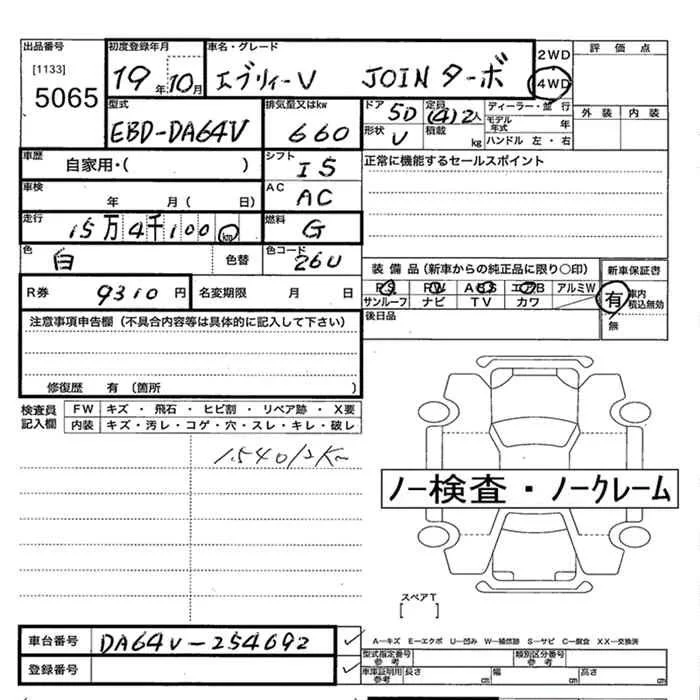 出品番号 初度登録年月 車名・グレード 2WD 評価点
[1133] 5065 19年10月 エブリィーV JOINターボ 4WD
型式 排気量又はkw ドア 5D 定員 (4)2人 ディーラー・並行 外装 内装
EBD-DA64V 660 形状 V 積載 kg モデル年式 年
ハンドル 左・右
車歴 自家用・( ) シフト I5 正常に機能するセールスポイント
車検 年 月( 日) AC AC
走行 15万4千100km 燃料 G
色 白 色替 色コード 26U
装備品(新車からの純正品に限り○印) 新車保証書
R券 9310円 名変期限 月 日 PS PW ABS エアB アルミW 有 車内積込無効
サンルーフ ナビ TV カワ 無
注意事項申告欄(不具合内容等は具体的に記入して下さい) 後日品
修復歴 有(箇所 )
検査員記入欄 FW キズ・飛石・ヒビ割・リペア跡・X要
内装 キズ・汚レ・コゲ・穴・スレ・キレ・破レ
ノー検査・ノークレーム
スペアT
[ ]
車台番号 DA64V-254692 A-キズ E-エクボ U-凹み W-補修跡 S-サビ C-腐食 XX-交換済
型式指定番号 参考 類別区分番号 参考
登録番号 車庫証明用参考 長さ cm 幅 cm 高さ cm